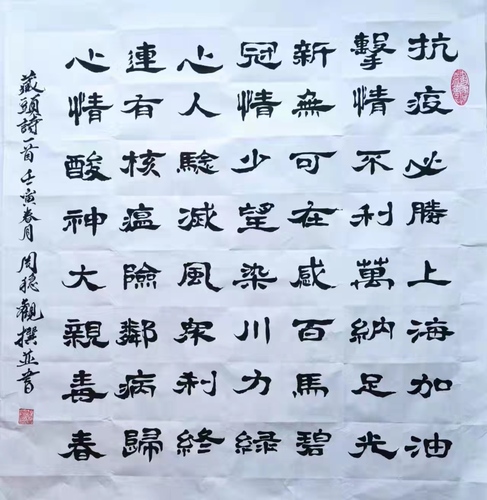 抗擊新冠心連心
疫情無情人有情
必不可少驗核酸
勝利在望滅瘟神
上萬感染風險大
海納百川鄰親
加足馬力刹病毒
油光碧綠終歸春
藏頭詩一首 壬寅春月 周觀撰並書